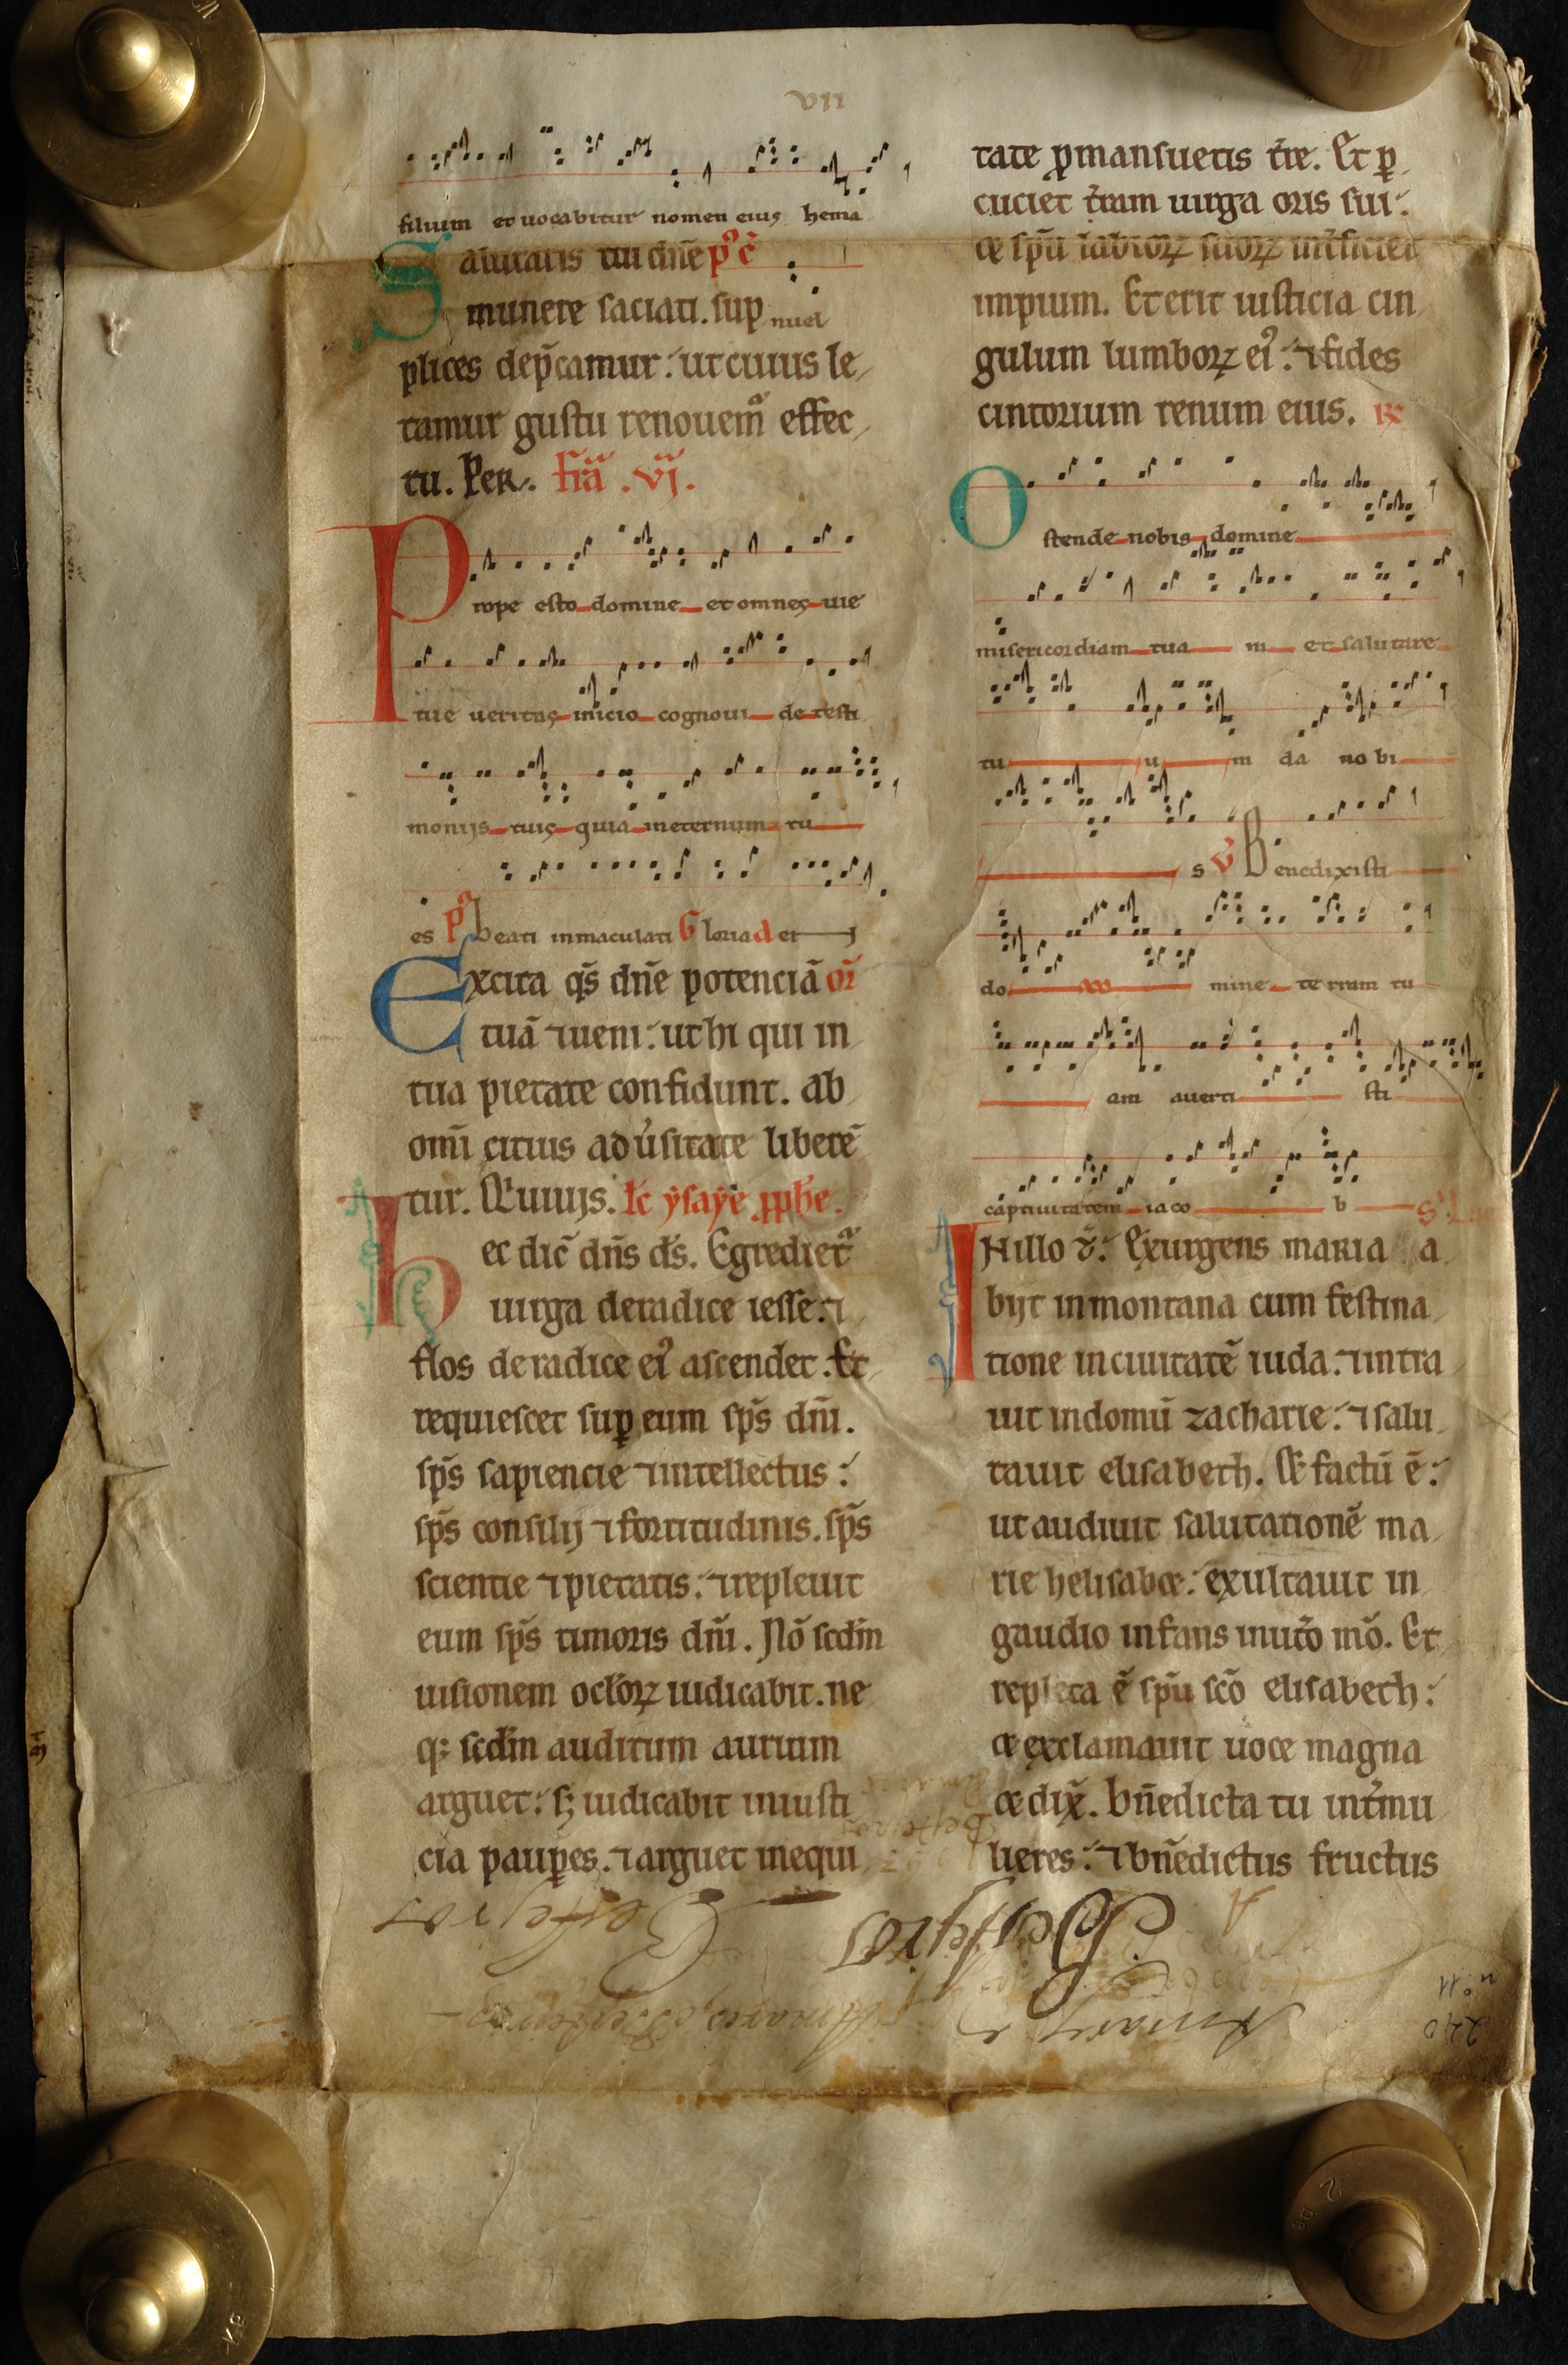 vii
filium et uocabitur nomen eius hema
Salutaris tui dn̄e pꝰ c̄
munere saciati. sup nuel
plices dep̄camur: ut cuius le
tamur gustu renouemᷓ effec
tu. Per. fr̄a .vj.
Prope esto domine et omnes uie
tue ueritas inicio cognoui de testi
monijs tuis quia ineternum tu
es pᷓ beati inmaculati Gloria d et
Excita qs̄ dn̄e potenciā or̄
tuā ⁊ueni: ut hi qui in
tua pietate confidunt. ab
om̄i citius aduˀsitate liberē
tur. Q̄ uiuijs. lc̄ ysaye ꝓphe.
hec dic̄ dn̄s ds̄. Egredietᷓ
uirga deradice iesse: ⁊
flos deradice eiꝰ ascendet. Et
requiescet suꝑ eum sp̄s dn̄i.
sp̄s sapiencie ⁊intellectus:
sp̄s consilij ⁊fortitudinis. sp̄s
scientie ⁊pietatis: ⁊repleuit
eum sp̄s timoris dn̄i. Nō scd̄m
uisionem ocl̄oꝝ iudicabit. ne
q: scd̄m auditum aurium
arguet: sꝫ iudicabit iniusti
cia pauꝑes. ⁊arguet inequi
tate ꝓmansuetis tr̄e. Et ꝑ
cuciet tr̄am uirga oris sui:
et sp̄u labioꝝ suoꝝ int̄ficiet
impium. Et erit iusticia cin
gulum lumboꝝ eiꝰ: ⁊fides
cintorium renum eius. ℟
Ostende nobis domine
misericordiam tua m et salutare
tu u m da no bi
s ℣ Benedixisti
do mine te rram tu
am auerti sti
captiuitatem iaco b
INillo t̄: Exurgens maria a
bijt inmontana cum festina
tione inciuitatē iuda: ⁊intra
uit indomū zacharie: ⁊salu
tauit elisabeth. Et factū ē:
ut audiuit salutationē ma
rie helisabet: exultauit in
gaudio infans inutˀo mō. Et
repleta ē sp̄u scō elisabeth:
et exclamauit uoce magna
et dix̄. bn̄edicta tu intˀmu
lieres: ⁊bn̄edictus fructus
n: 11
240